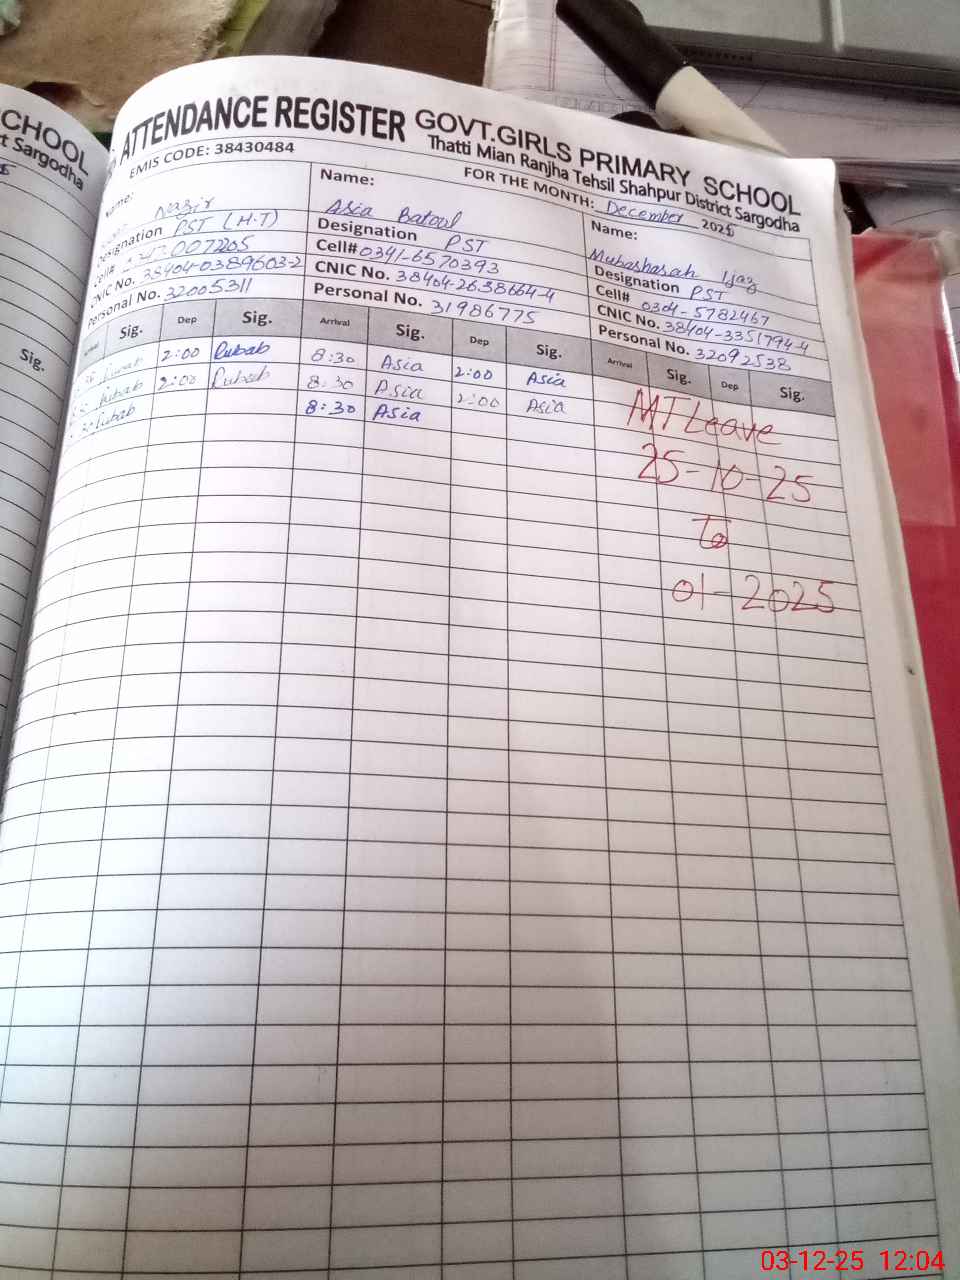 CHOOL
t Sargodha
Sig.
ATTENDANCE REGISTER GOVT.GIRLS PRIMARY SCHOOL
Thatti Mian Ranjha Tehsil Shahpur District Sargodha
EMIS CODE: 38430484
FOR THE MONTH: December 2025
Name: Nazir
Designation PST (H.T)
Cell# 007205
CNIC No. 38404-0389603-2
Personal No. 32005311
Name:
Asia Batool
Designation PST
Cell# 0341-6570393
CNIC No. 38404-2638664-4
Personal No. 31986775
Name:
Mubasharah Ijaz
Designation PST
Cell# 0304-5782467
CNIC No. 38404-3351794-4
Personal No. 32092538
Sig. Dep Sig. Arrival Sig. Dep Sig. Arrival Sig. Dep Sig.
Rubab 2:00 Rubab 8:30 Asia 2:00 Asia
Rubab 2:00 Rubab 8:30 Asia 2:00 Asia
Rubab 8:30 Asia
MT Leave
25-10-25
To
01-2025
03-12-25 12:04